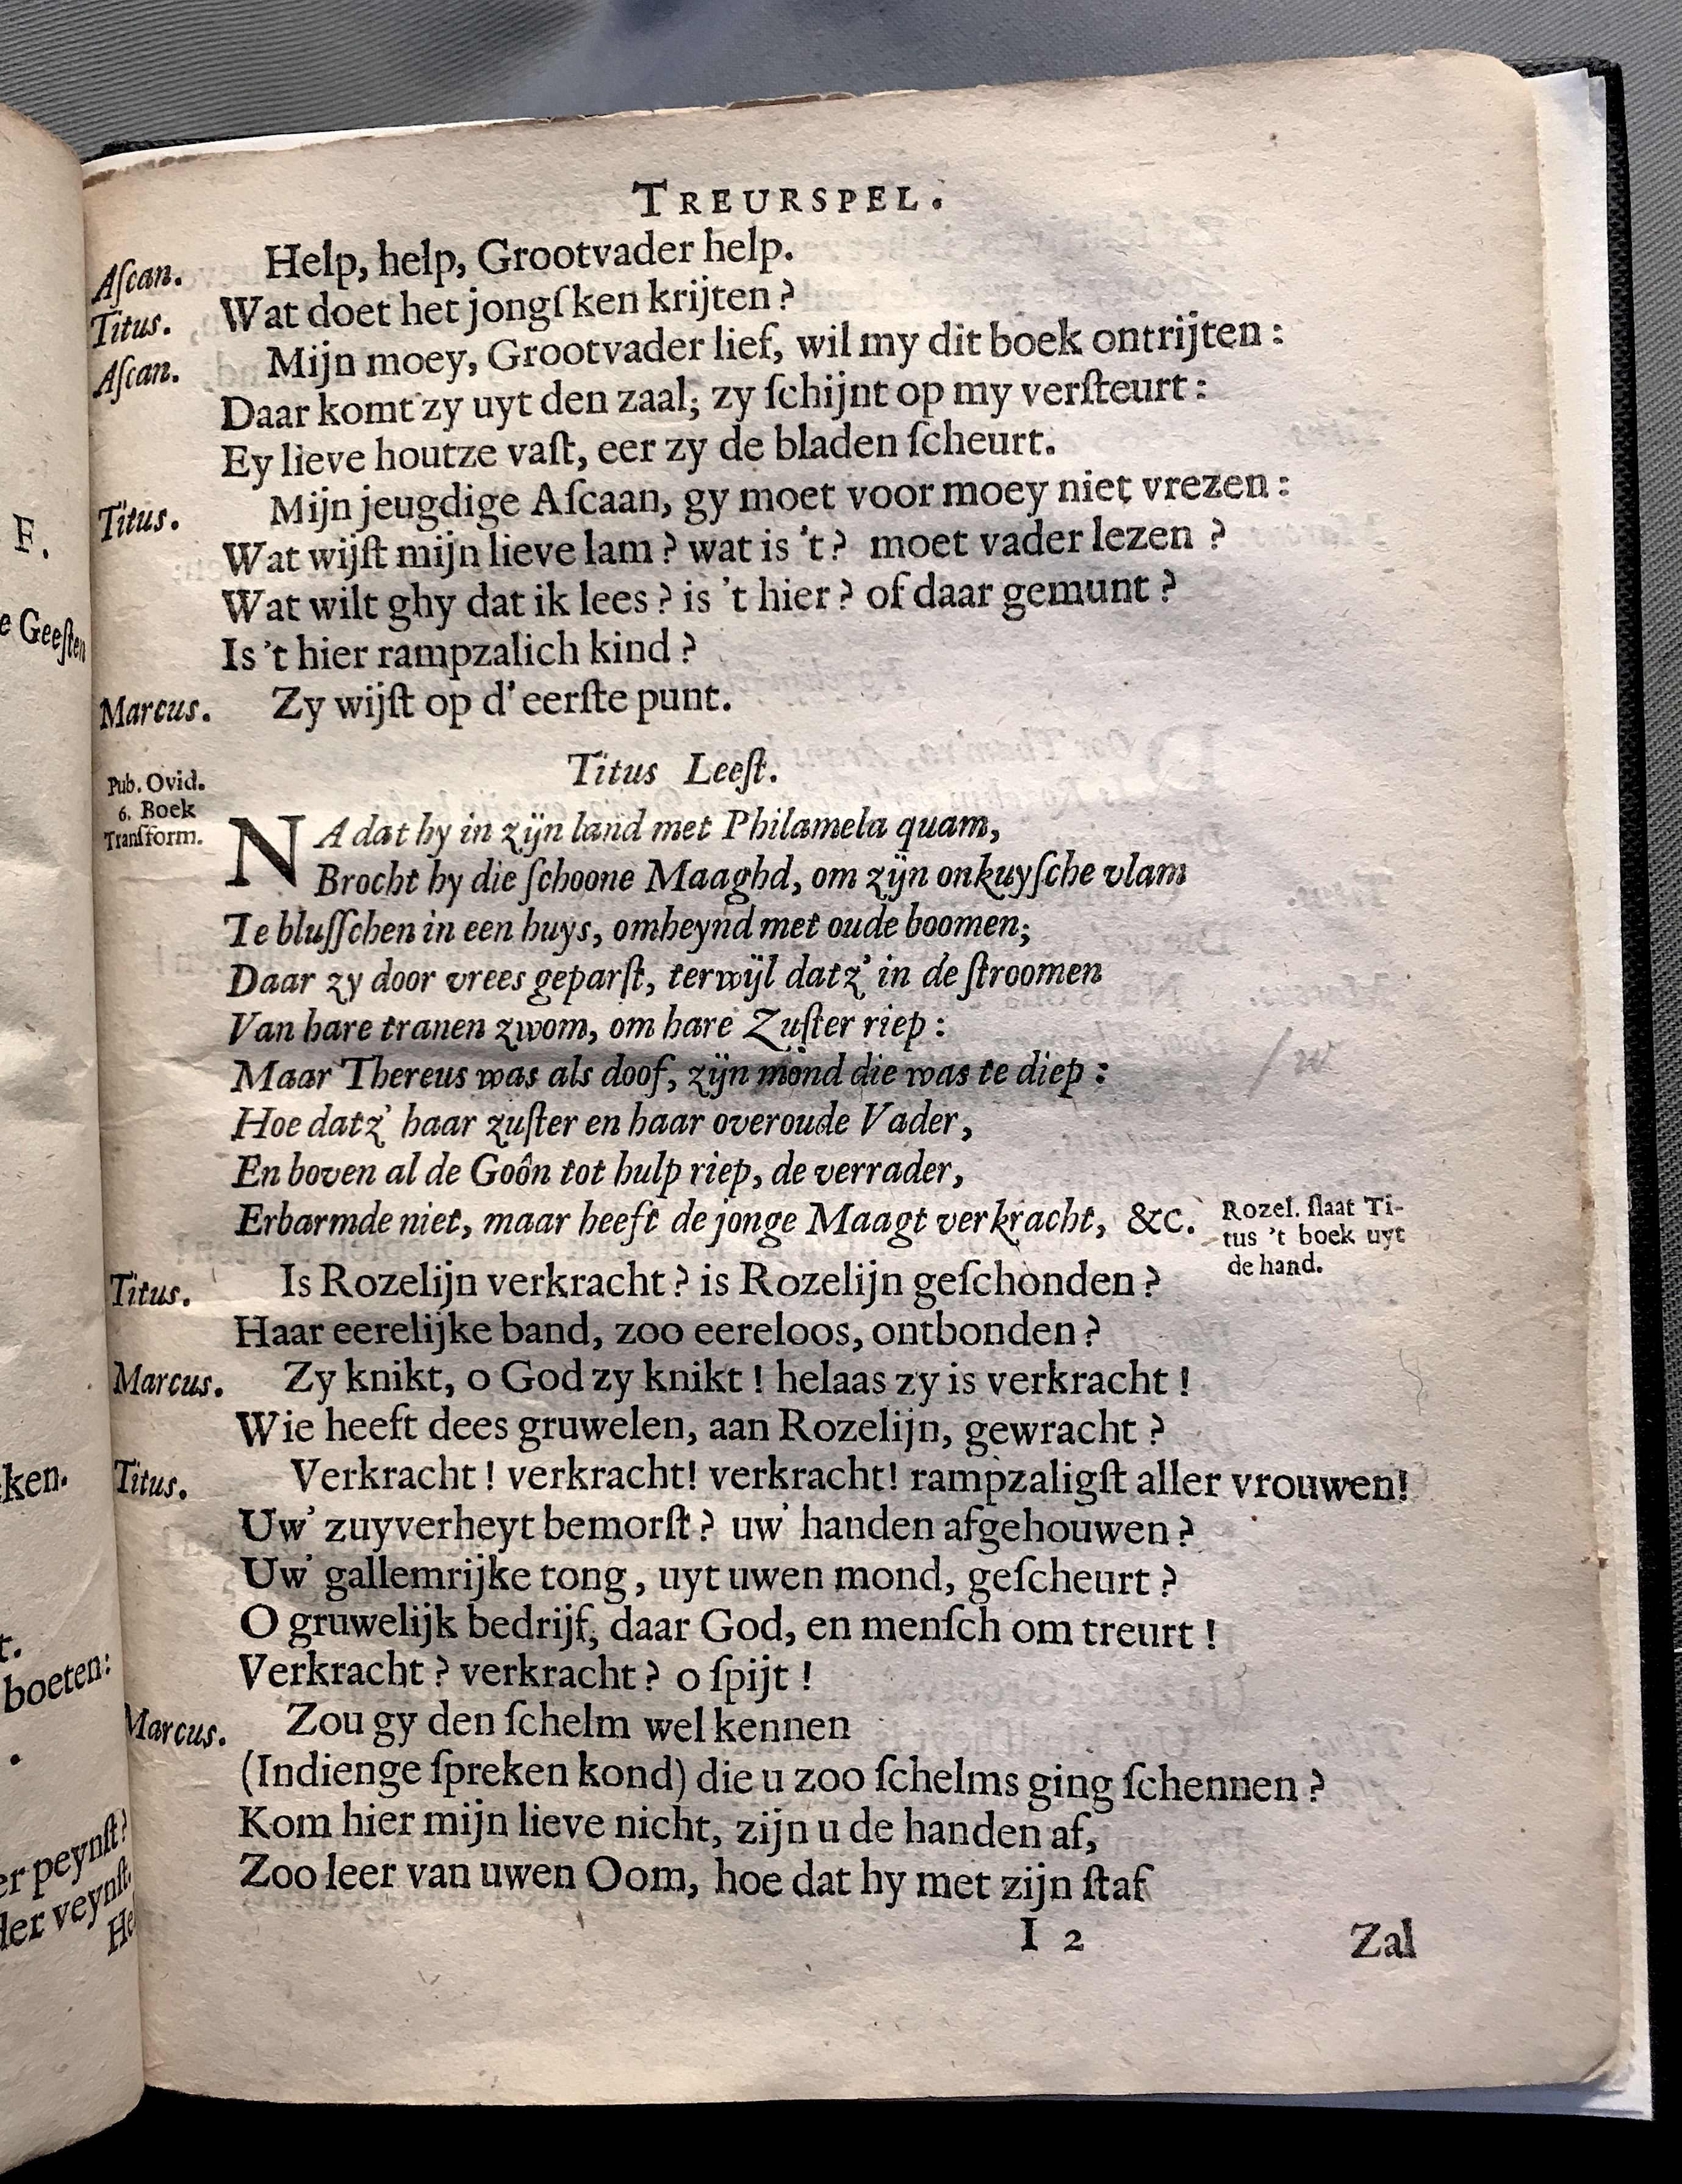 TREURSPEL.
Aſcan. Help, help, Grootvader help.
Titus. Wat doet het jongſken krijten?
Aſcan. Mijn moey, Grootvader lief, wil my dit boek ontrijten:
Daar komt zy uyt den zaal; zy ſchijnt op my verſteurt:
Ey lieve houtze vaſt, eer zy de bladen ſcheurt.
Titus. Mijn jeugdige Aſcaan, gy moet voor moey niet vrezen:
Wat wijſt mijn lieve lam? wat is 't? moet vader lezen?
Wat wilt ghy dat ik lees? is 't hier? of daar gemunt?
Is 't hier rampzalich kind?
Marcus. Zy wijſt op d' eerſte punt.
Titus Leeſt.
Pub. Ovid.
6. Boek
Tranſform.
NA dat hy in zijn land met Philamela quam,
Brocht hy die ſchoone Maaghd, om zijn onkuyſche vlam
Te bluſſchen in een huys, omheynd met oude boomen;
Daar zy door vrees geparſt, terwijl datz' in de ſtroomen
Van hare tranen zwom, om hare Zuſter riep:
Maar Thereus was als doof, zijn mond die was te diep:
/ w
Hoe datz' haar zuſter en haar overoude Vader,
En boven al de Goôn tot hulp riep, de verrader,
Erbarmde niet, maar heeft de jonge Maagt verkracht, &c.
Rozel. ſlaat Ti-
tus 't boek uyt
de hand.
Titus. Is Rozelijn verkracht? is Rozelijn geſchonden?
Haar eerelijke band, zoo eereloos, ontbonden?
Marcus. Zy knikt, o God zy knikt! helaas zy is verkracht!
Wie heeft dees gruwelen, aan Rozelijn, gewracht?
Titus. Verkracht! verkracht! verkracht! rampzaligſt aller vrouwen!
Uw' zuyverheyt bemorſt? uw' handen afgehouwen?
Uw' gallemrijke tong, uyt uwen mond, geſcheurt?
O gruwelijk bedrijf, daar God, en menſch om treurt!
Verkracht? verkracht? o ſpijt!
Marcus. Zou gy den ſchelm wel kennen
(Indienge ſpreken kond) die u zoo ſchelms ging ſchennen?
Kom hier mijn lieve nicht, zijn u de handen af,
Zoo leer van uwen Oom, hoe dat hy met zijn ſtaf
I 2 Zal
F.
e Geeſten
ken.
t.
boeten:
er peynſt?
der veynſt.
He